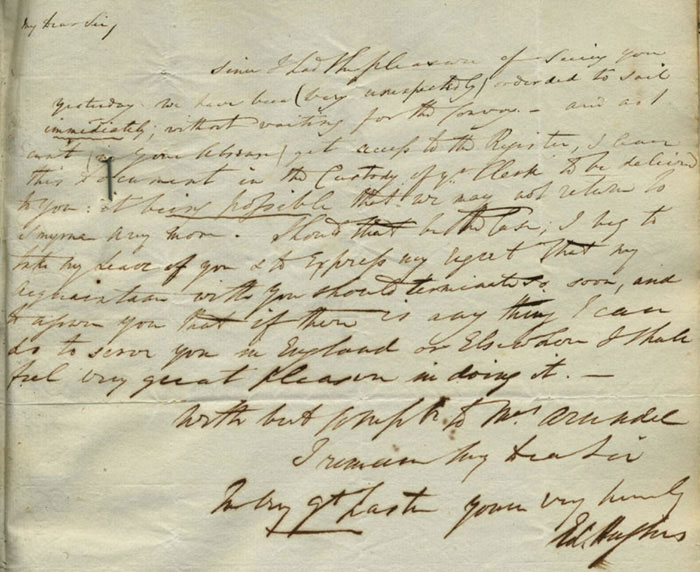 My Dear Sir,
Since I had the pleasure of Seeing you
Yesterday we have been (very unexpectedly) ordered to sail
immediately, without waiting for the Convoy — and as I
can't (in your Absence) get access to the Register, I leave
this Document in the Custody of yr. Clerk to be deliver'd
to you: it being possible that we may not return to
Smyrna any more. Should that be the Case, I beg to
take my Leave of you & to Express my regret that my
acquaintance with you should terminate so soon, and
to assure you that if there is any thing I can
do to serve you in England or Elsewhere I shall
feel very great pleasure in doing it. —
With best Compts. to Mrs Arundel
I remain My Dear Sir
In very gt. haste yours very truly
Ed Hughes